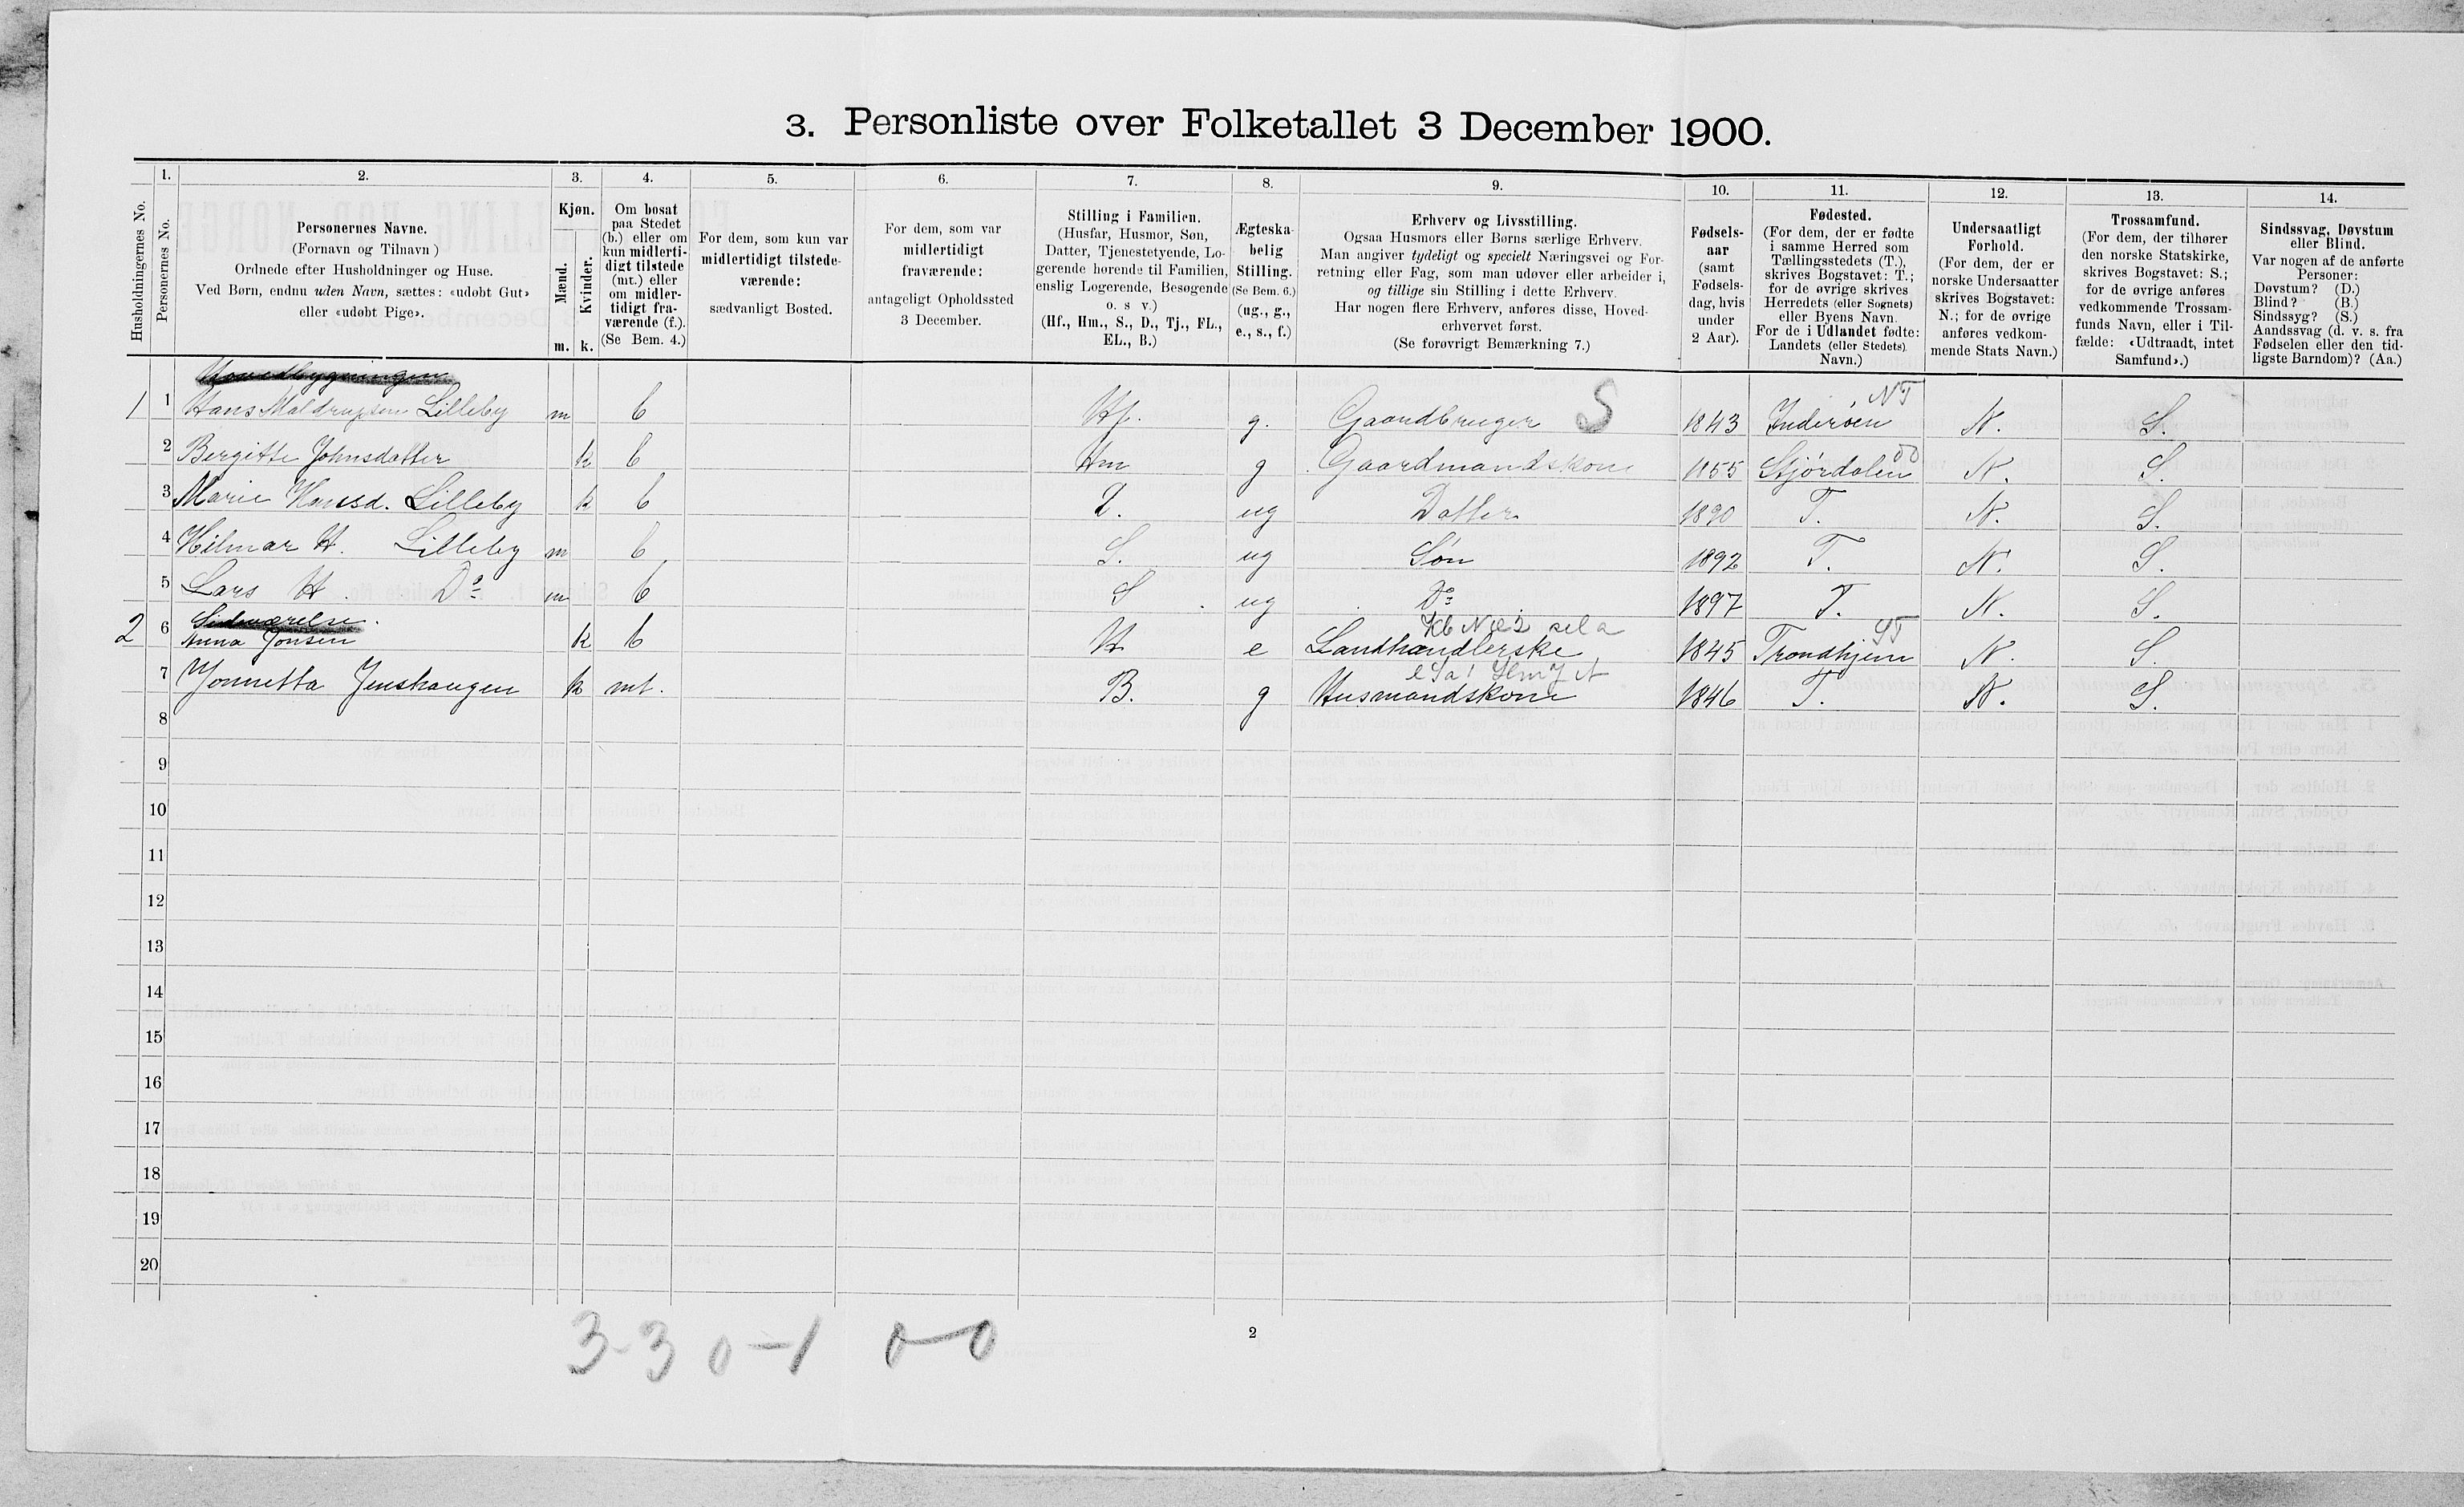 3. Personliste over Folketallet 3 December 1900.
1. 2. 3. 4. 5. 6. 7. 8. 9. 10. 11. 12. 13. 14.
Husholdningernes No.
Personernes No.
Personernes Navne.
(Fornavn og Tilnavn)
Ordnede efter Husholdninger og Huse.
Ved Børn, endnu uden Navn, sættes: «udøbt Gut»
eller «udøbt Pige».
Kjøn.
Mænd.
Kvinder.
m. k.
Om bosat
paa Stedet
(b.) eller om
kun midlerti-
digt tilstede
(mt.) eller
om midler-
tidigt fra-
værende (f.).
(Se Bem. 4.)
For dem, som kun var
midlertidigt tilstede-
værende:
sædvanligt Bosted.
For dem, som var
midlertidigt
fraværende:
antageligt Opholdssted
3 December.
Stilling i Familien.
(Husfar, Husmor, Søn,
Datter, Tjenestetyende, Lo-
gerende hørende til Familien,
enslig Logerende, Besøgende
o. s v.)
(Hf., Hm., S., D., Tj., FL.,
EL., B.)
Ægteska-
belig
Stilling.
(Se Bem. 6.)
(ug., g.,
e., s., f.)
Erhverv og Livsstilling.
Ogsaa Husmors eller Børns særlige Erhverv.
Man angiver tydeligt og specielt Næringsvei og For-
retning eller Fag, som man udøver eller arbeider i,
og tillige sin Stilling i dette Erhverv.
Har nogen flere Erhverv, anføres disse, Hoved-
erhvervet først.
(Se forøvrigt Bemærkning 7.)
Fødsels-
aar
(samt
Fødsels-
dag, hvis
under
2 Aar).
Fødested.
(For dem, der er fødte
i samme Herred som
Tællingsstedets (T.),
skrives Bogstavet: T.;
for de øvrige skrives
Herredets (eller Sognets)
eller Byens Navn.
For de i Udlandet fødte:
Landets (eller Stedets)
Navn.)
Undersaatligt
Forhold.
(For dem, der er
norske Undersaatter
skrives Bogstavet:
N.; for de øvrige
anføres vedkom-
mende Stats Navn.)
Trossamfund.
(For dem, der tilhører
den norske Statskirke,
skrives Bogstavet: S.;
for de øvrige anføres
vedkommende Trossam-
funds Navn, eller i Til-
fælde: «Udtraadt, intet
Samfund».)
Sindssvag, Døvstum
eller Blind.
Var nogen af de anførte
Personer:
Døvstum? (D.)
Blind? (B.)
Sindssyg? (S.)
Aandssvag (d. v. s. fra
Fødselen eller den tid-
ligste Barndom)? (Aa.)
Hovedbygningen
NT
1 1 Hans Lilleby m b Hf. g. Gaardbruger S 1843 Inderøen N. S.
2 Bergitte Johnsdatter k b Hm g Gaardmandskone 1855 Stjørdalen N. S.
3 Marie Hansd. Lilleby k b D. ug Datter 1890 T. N. S.
4 Hilmar H. Lilleby m b S. ug Søn 1892 T. N. S.
5 Lars H. Do m b S ug Do 1897 T. N. S.
Sideværelse.
ST
2 6 Anna Jonsen k b H e Landhandlerske 1845 Trondhjem N. S.
7 Jonnetta Jenshaugen k mt. B. g Husmandskone 1846 T. N. S.
8
9
10
11
12
13
14
15
16
17
18
19
20
3-3 0-1 0-0
2